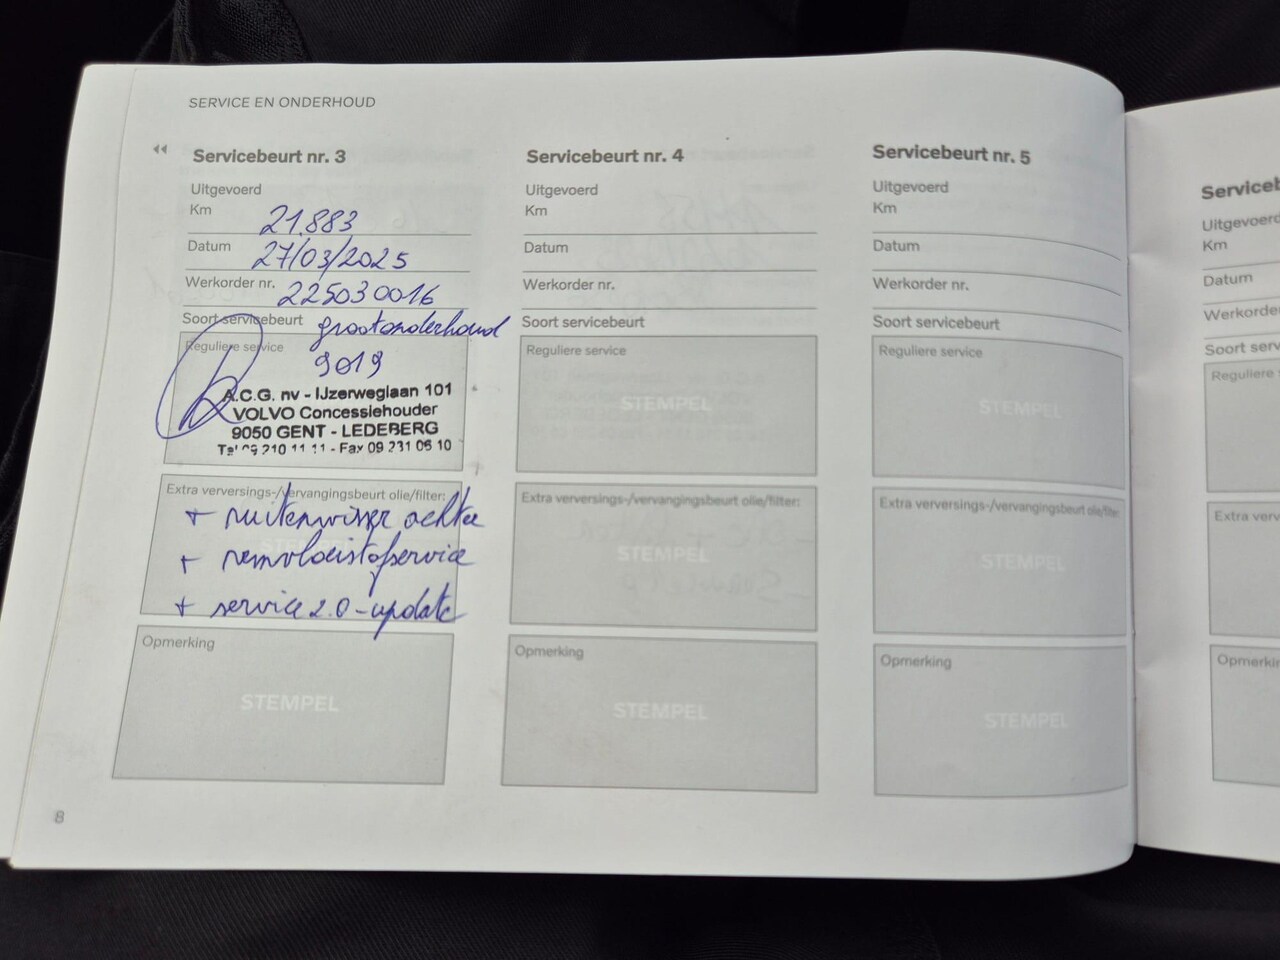 SERVICE EN ONDERHOUD
Servicebeurt nr. 3
Uitgevoerd
Km 21.883
Datum 27/03/2025
Werkorder nr. 225030016
Soort servicebeurt grootonderhoud
Reguliere service
9019
A.C.G. nv - IJzerweglaan 101
VOLVO Concessiehouder
9050 GENT - LEDEBERG
Tel 09 210 11 11 - Fax 09 231 06 10
Extra verversings-/vervangingsbeurt olie/filter:
+ ruitenwisser achter
+ remvloeistofservice
+ service 2.0-update
Opmerking
STEMPEL
8
Servicebeurt nr. 4
Uitgevoerd
Km
Datum
Werkorder nr.
Soort servicebeurt
Reguliere service
STEMPEL
Extra verversings-/vervangingsbeurt olie/filter:
STEMPEL
Opmerking
STEMPEL
Servicebeurt nr. 5
Uitgevoerd
Km
Datum
Werkorder nr.
Soort servicebeurt
Reguliere service
STEMPEL
Extra verversings-/vervangingsbeurt olie/filter:
STEMPEL
Opmerking
STEMPEL
Serviceb
Uitgevoerd
Km
Datum
Werkorder
Soort serv
Reguliere s
Extra verver
Opmerkin